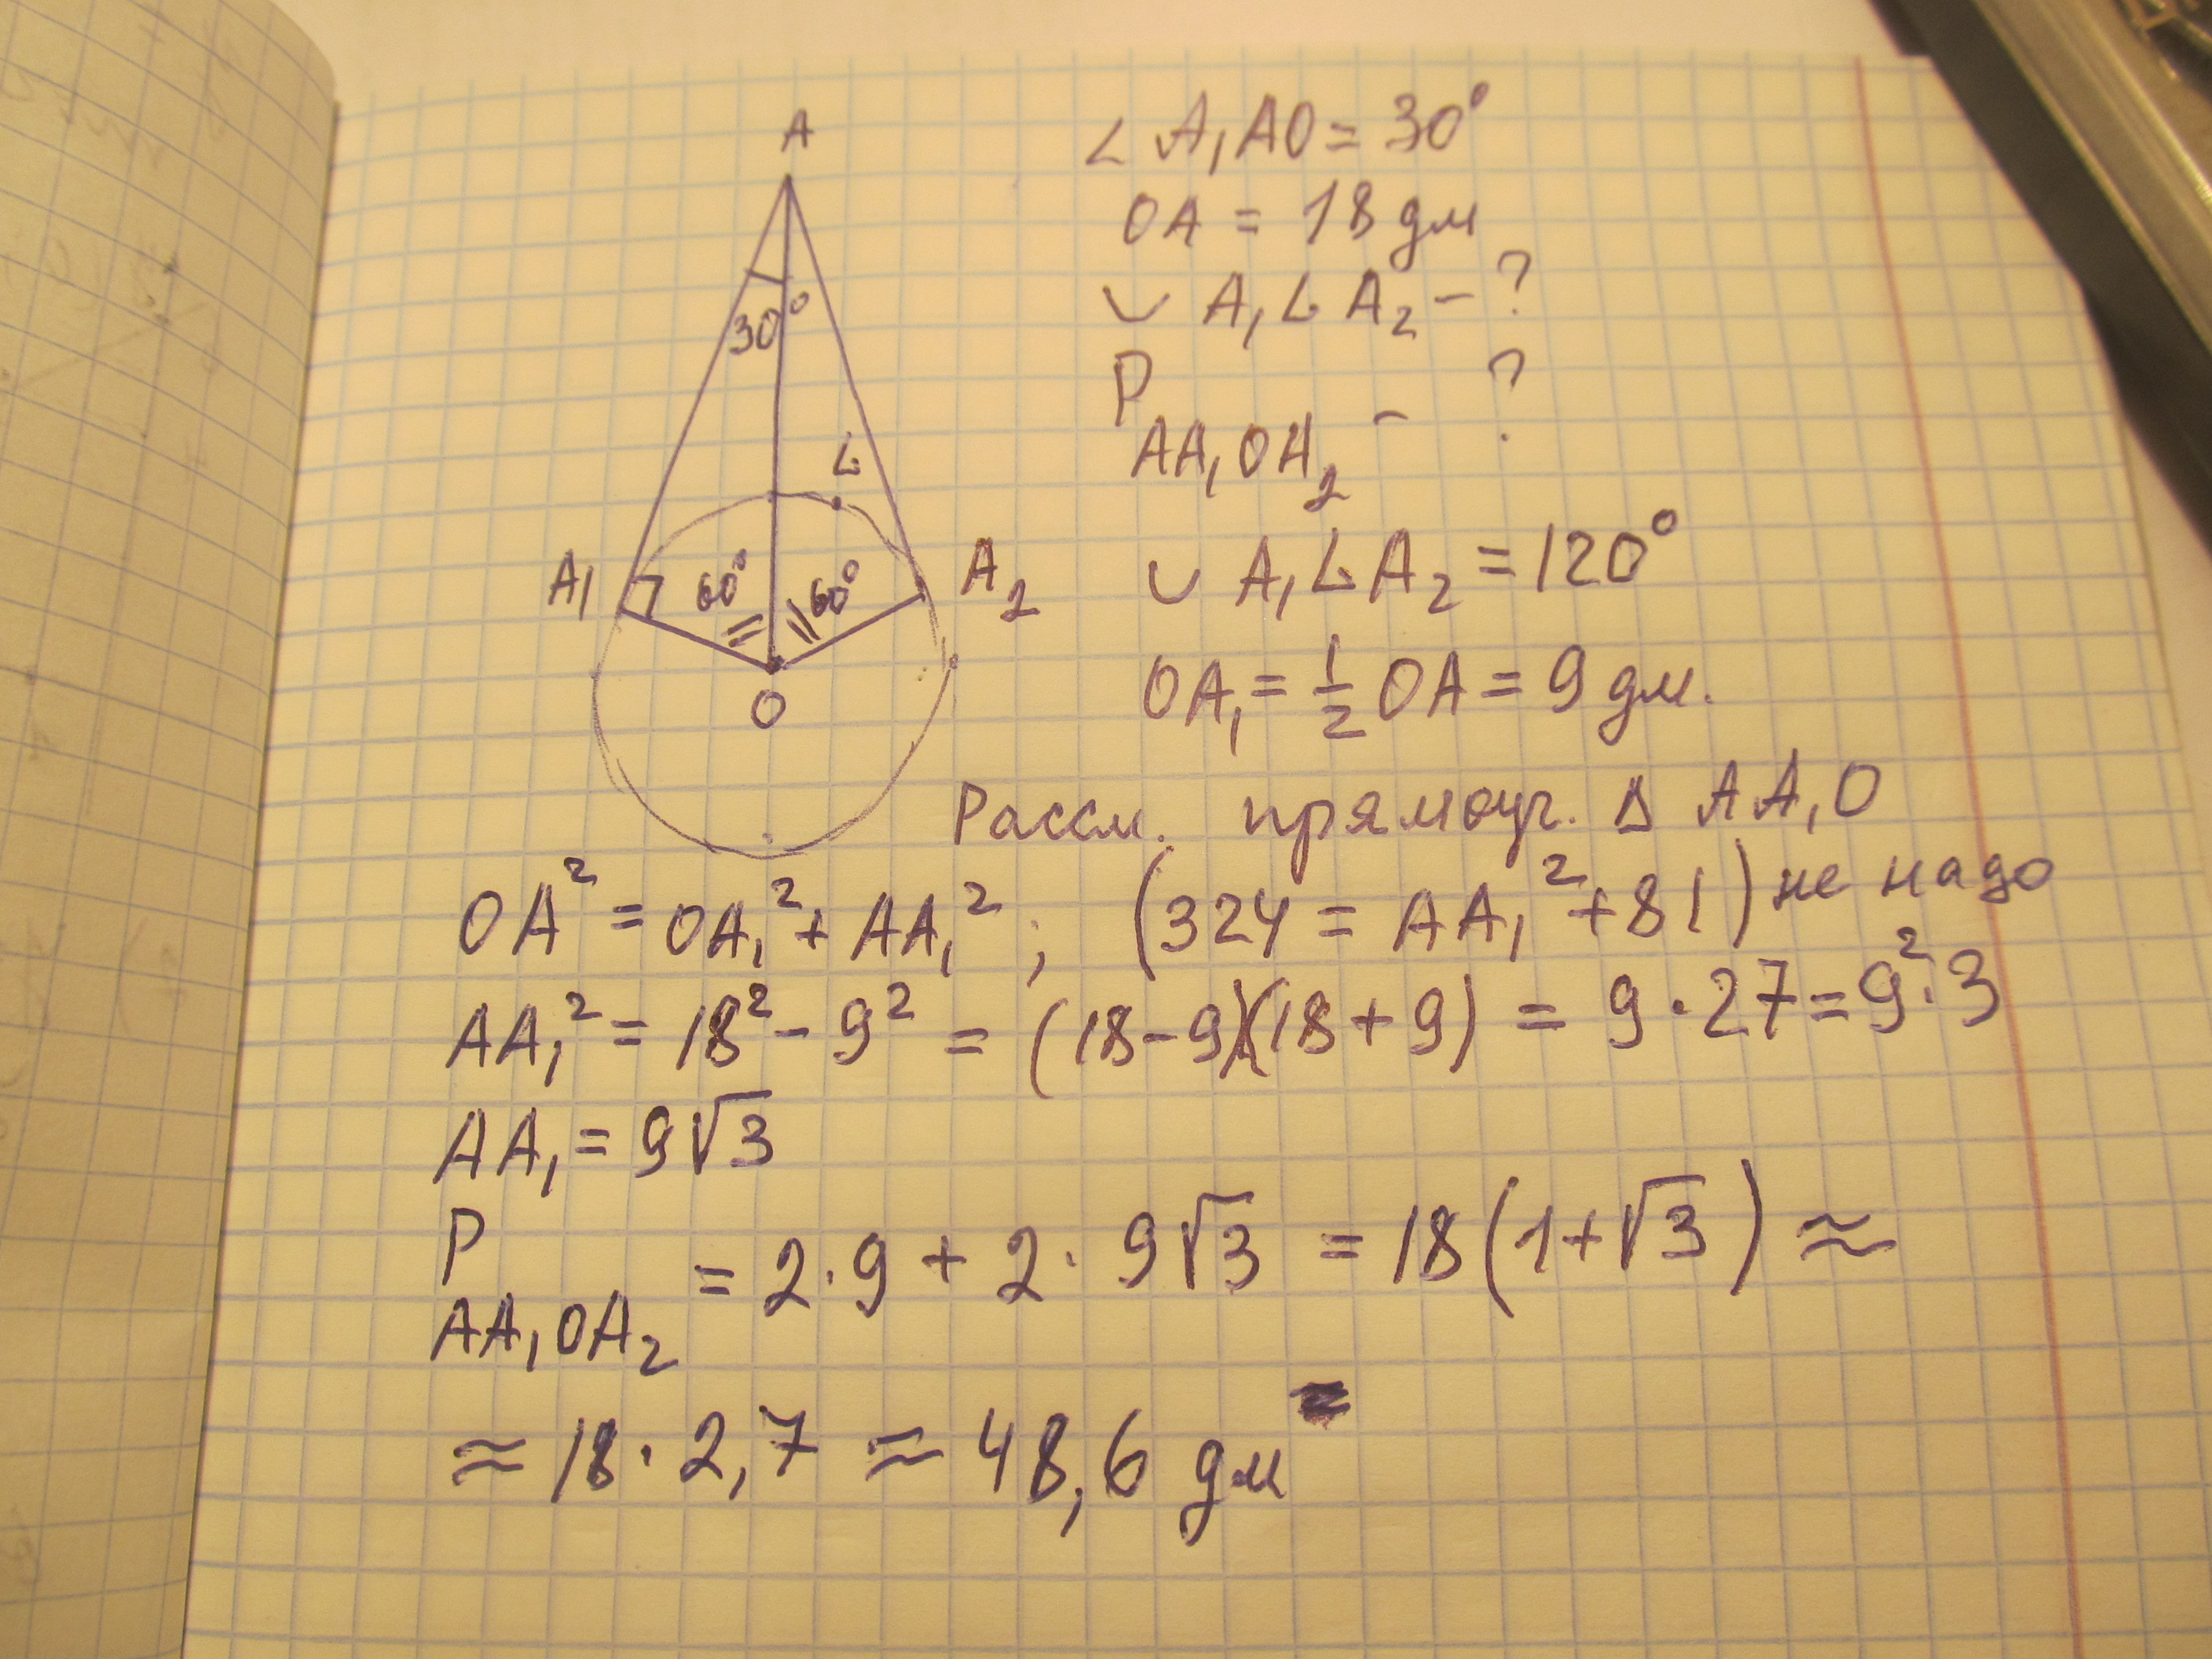 A
30°
L
A₁
60°
60°
A₂
O
∠ A₁AO = 30°
OA = 18 дм
◡ A₁LA₂ - ?
P AA₁OA₂ - ?
◡ A₁LA₂ = 120°
OA₁ = 1/2 OA = 9 дм.
Рассм. прямоуг. Δ AA₁O
OA² = OA₁² + AA₁² ; (324 = AA₁² + 81) не надо
AA₁² = 18² - 9² = (18-9)(18+9) = 9·27 = 9²·3
AA₁ = 9√3
P AA₁OA₂ = 2·9 + 2·9√3 = 18(1+√3) ≈
≈ 18·2,7 ≈ 48,6 дм